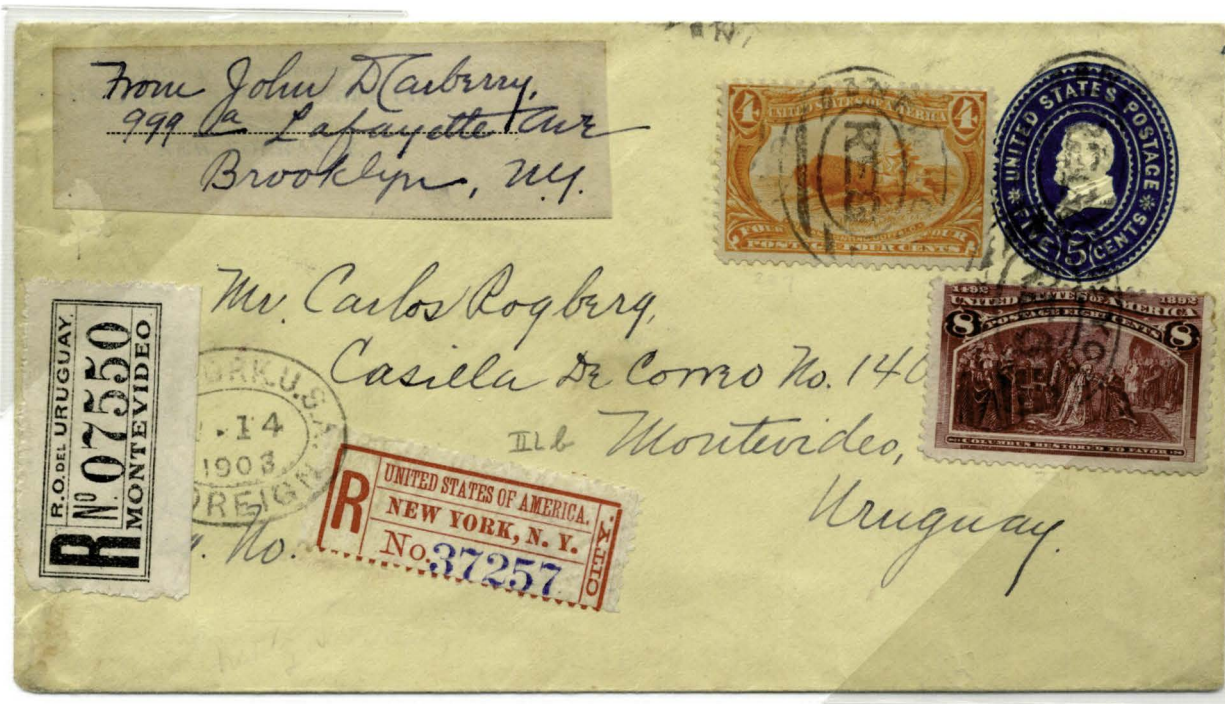 From John D Carberry,
999 a Lafayette Ave
Brooklyn, N.Y.
4 UNITED STATES OF AMERICA 4
FOUR FOUR
POSTAGE FOUR CENTS
REG
UNITED STATES POSTAGE
FIVE 5 CENTS
1492 UNITED STATES OF AMERICA 1892
8 POSTAGE EIGHT CENTS 8
COLUMBUS RESTORED TO FAVOR
Mr. Carlos Rogberg,
Casilla De Correo No. 140
Montevideo,
Uruguay.
III b
R.O. DEL URUGUAY.
R Nº 07550
MONTEVIDEO
YORK. U.S.A.
14
1903
FOREIGN
No.
R UNITED STATES OF AMERICA.
NEW YORK, N. Y.
No. 37257